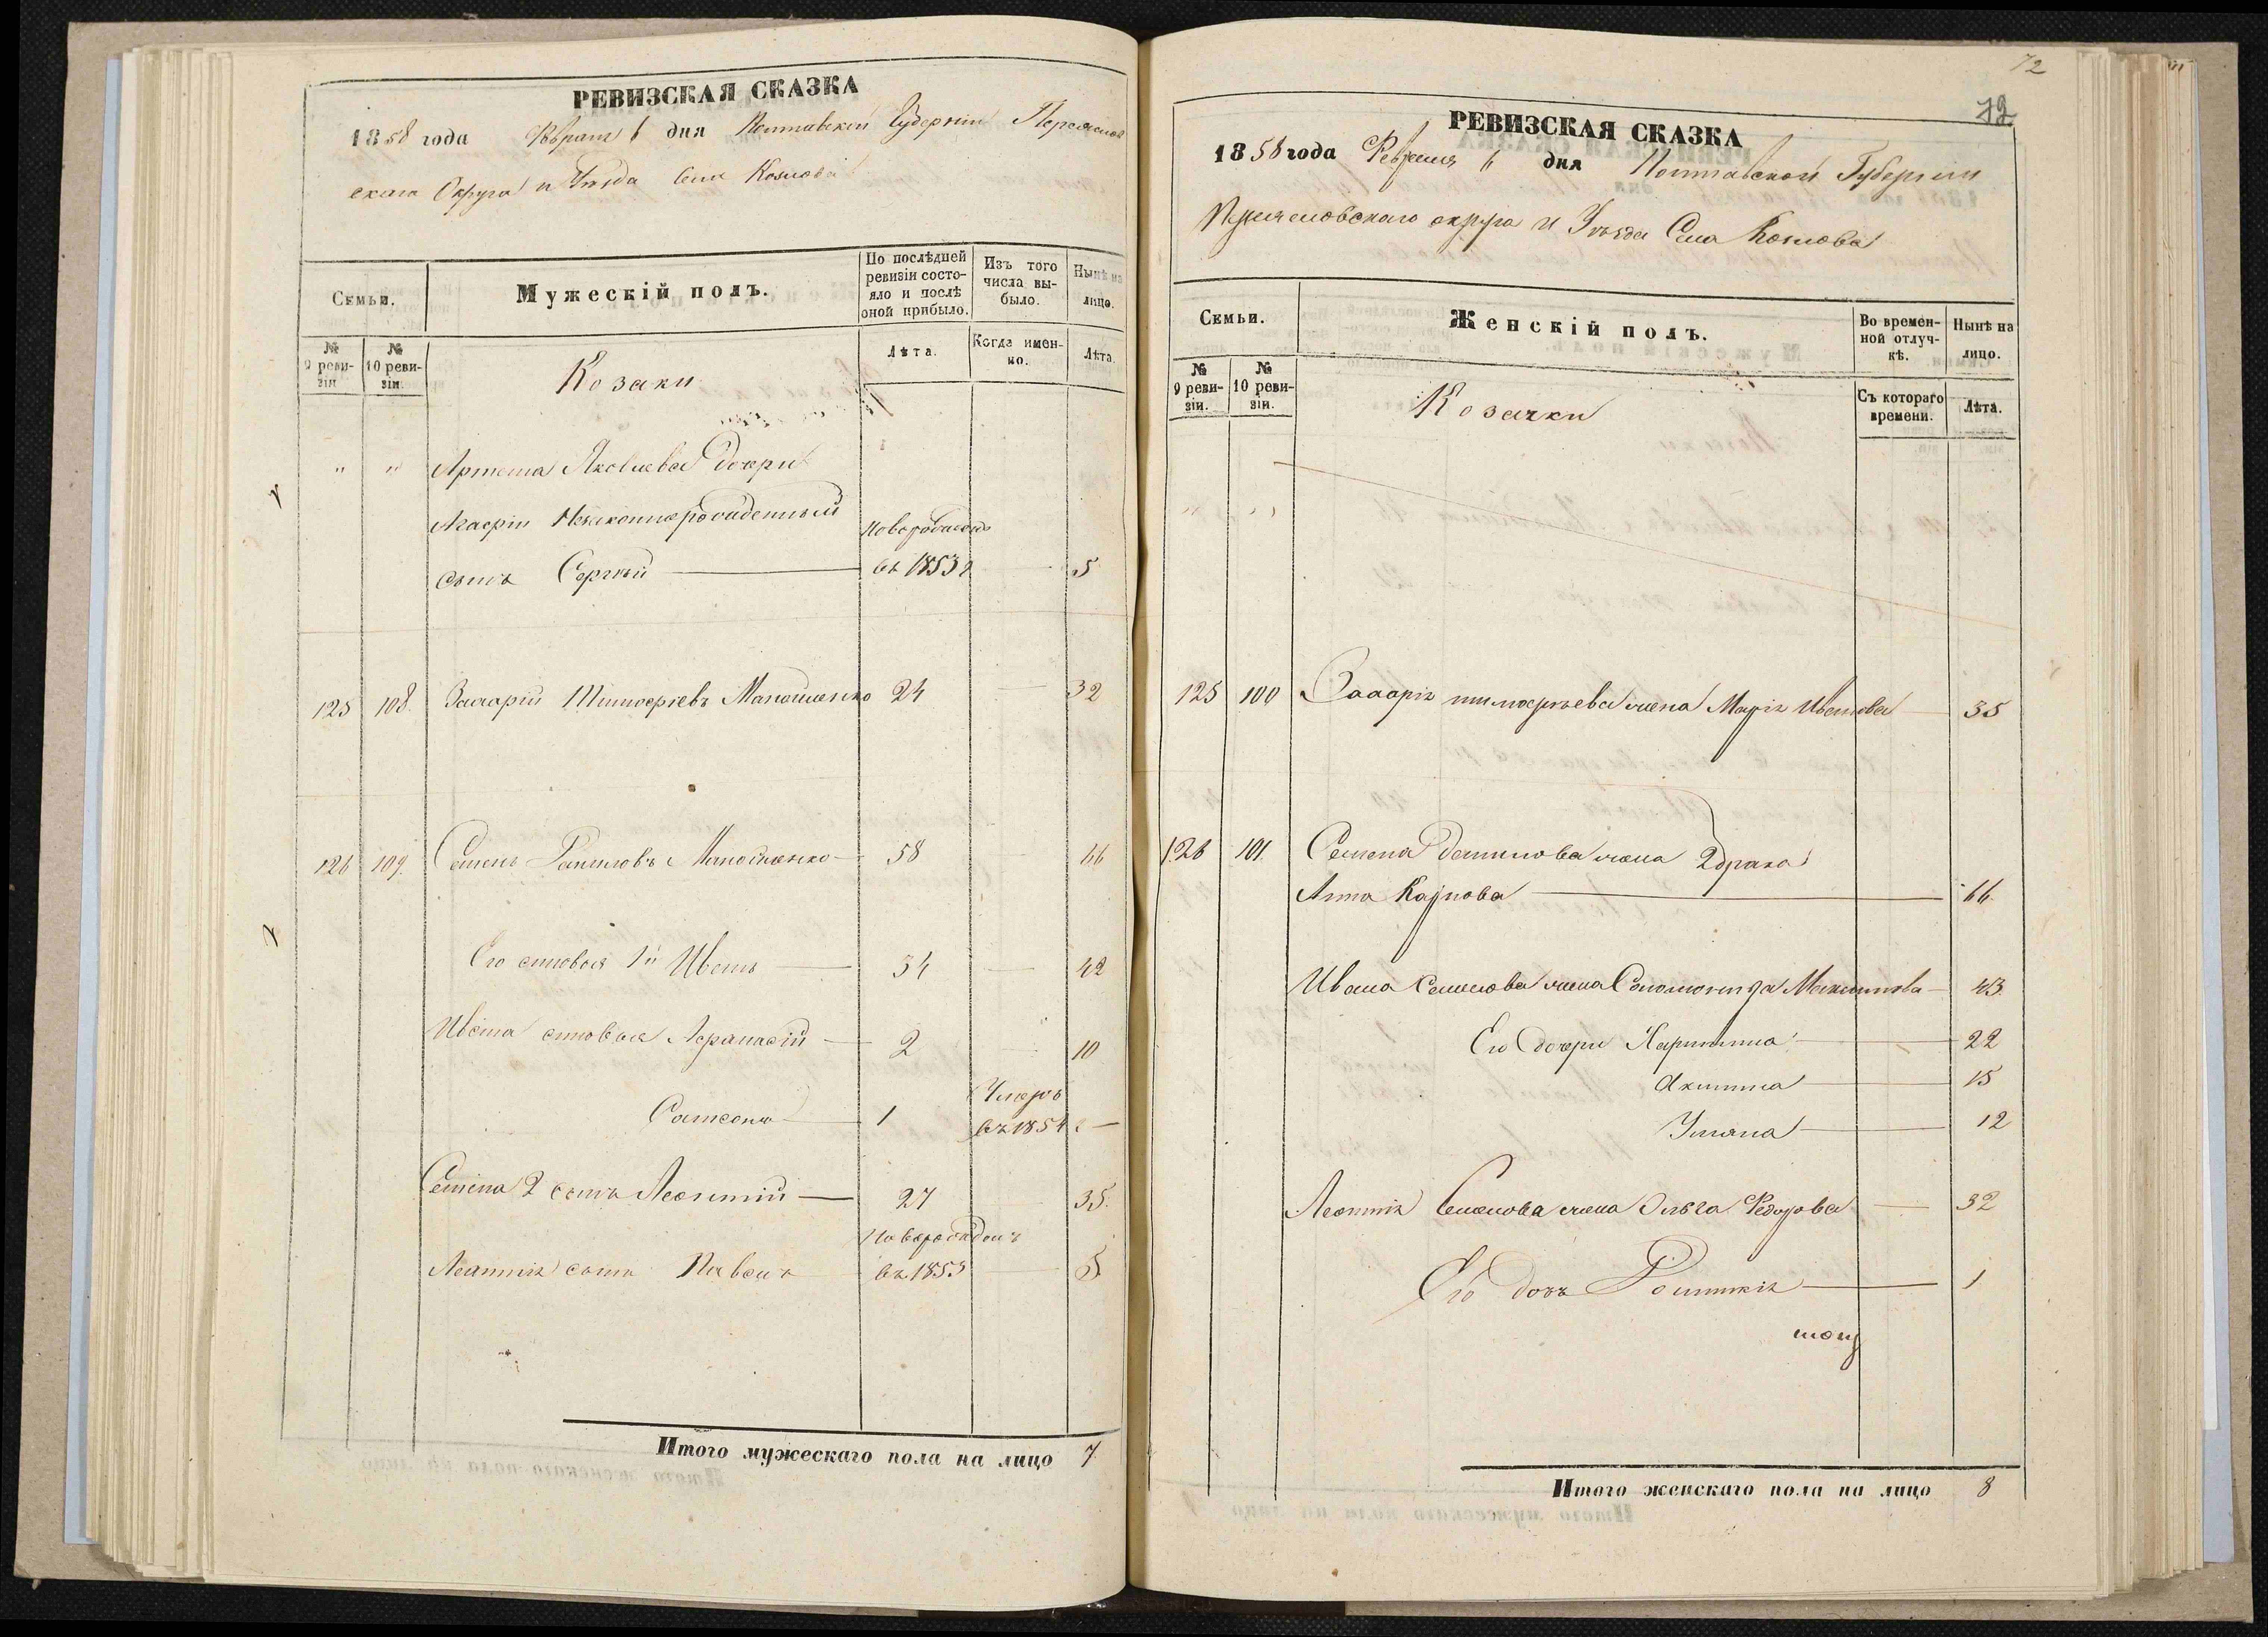 РЕВИЗСКАЯ СКАЗКА
1858 года Февраля 6 дня Полтавской Губерніи Переяслов
скаго Округа и Уѣзда Села Козлова
Семьи.
Мужескій полъ.
По послѣдней ревизіи состояло и послѣ оной прибыло.
Изъ того числа выбыло.
Нынѣ на лицо.
№ 9 ревизіи
№ 10 ревизіи.
Козаки
Лѣта.
Когда именно.
Лѣта.
" " Артема Яковлева дочери
Агафіи Незаконнорожденный
новорожденъ
сынъ Сергѣй — въ 1853 г — 5
125 108. Захарій Тимофѣевъ Манойленко 24 — 32
126 109. Семенъ Даниловъ Манойленко — 58 66
Его сыновья 1й Иванъ — 34 — 42
Ивана сыновья Афанасій — 2 10
Умеръ
Самсонъ — 1 въ 1854 г —
Семена 2 сынъ Леонтій — 27 35.
Новорожденъ
Леонтія сынъ Павелъ въ 1853 — 5
Итого мужескаго пола на лицо 7
72
72
РЕВИЗСКАЯ СКАЗКА
1858 года Февраля 6 дня Полтавской Губерніи
Переяславскаго округа и Уѣзда Села Козлова
Семьи.
Женскій полъ.
Во временной отлучкѣ.
Нынѣ на лицо.
№ 9 ревизіи.
№ 10 ревизіи.
Козачки
Съ котораго времени.
Лѣта.
" "
125 100 Захарія тимофѣева жена Марія Иванова — 35
126 101. Семена Данилова жена 2 брака
Анна Карпова — 66.
Ивана Семенова жена Соломонида Максимова — 43.
Его дочери Харитина — 22
Акилина — 15
Ульяна — 12
Леонтія Семенова жена Ольга Федорова — 32
Его дочь — 1
Итого женскаго пола на лицо 8